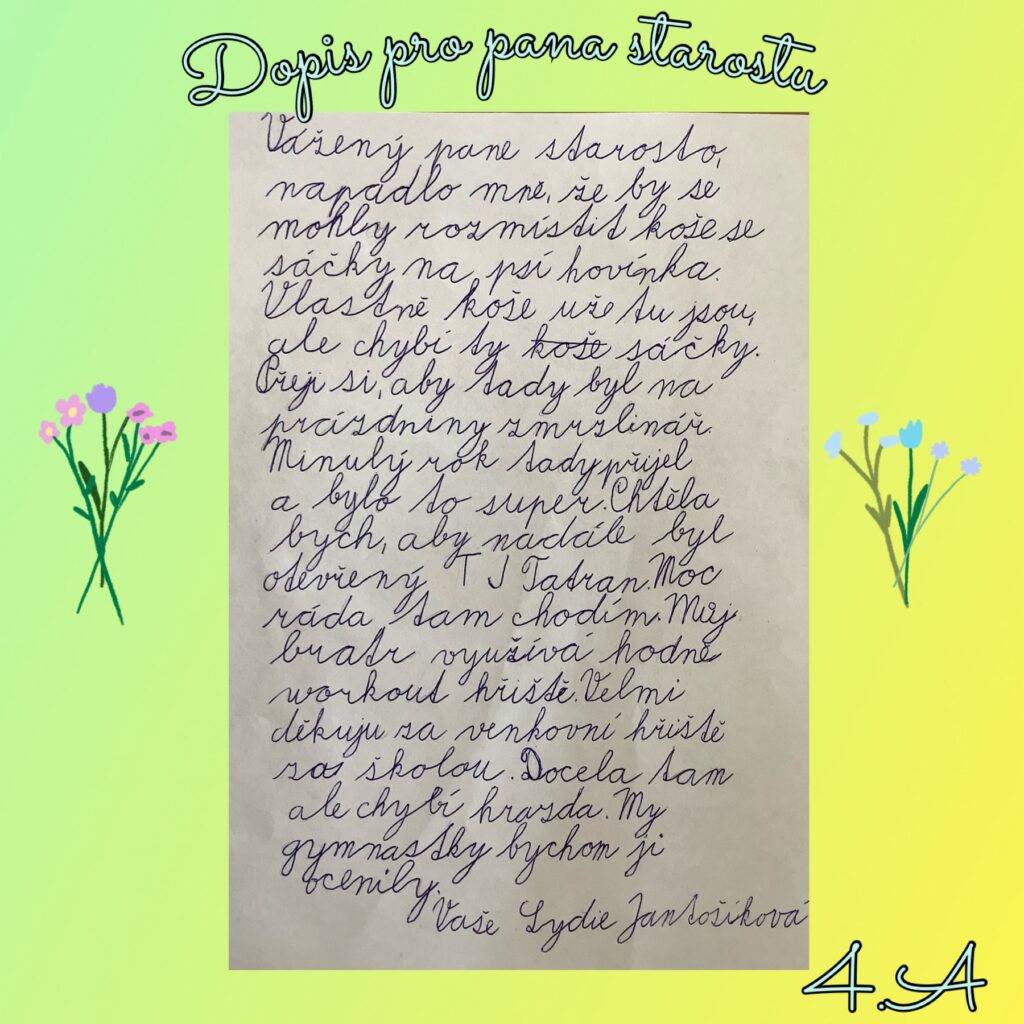 Dopis pro pana starostu
Vážený pane starosto,
napadlo mně, že by se
mohly rozmístit koše se
sáčky na psí hovínka.
Vlastně koše už tu jsou,
ale chybí ty koše sáčky.
Přeji si, aby tady byl na
prázdniny zmrzlinář.
Minulý rok tady přijel
a bylo to super. Chtěla
bych, aby nadále byl
otevřený TJ Tatran. Moc
ráda tam chodím. Můj
bratr využívá hodně
workout hřiště. Velmi
děkuju za venkovní hřiště
za školou. Docela tam
ale chybí hrazda. My
gymnastky bychom ji
ocenily.
Vaše Lydie Jantošíková
4.A